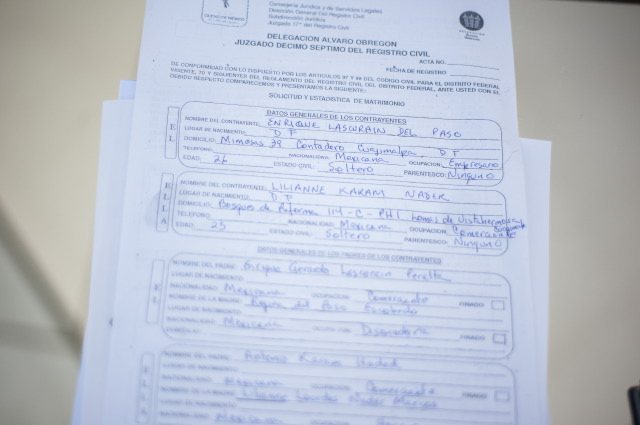 CIUDAD DE MÉXICO
Consejería Jurídica y de Servicios Legales
Dirección General Del Registro Civil
Subdirección Jurídica
Juzgado 17° del Registro Civil
DELEGACION ALVARO OBREGON
JUZGADO DECIMO SEPTIMO DEL REGISTRO CIVIL
ACTA NO.
FECHA DE REGISTRO
DE CONFORMIDAD CON LO DISPUESTO POR LOS ARTICULOS 97 Y 98 DEL CODIGO CIVIL PARA EL DISTRITO FEDERAL
VIGENTE, 70 Y SIGUIENTES DEL REGLAMENTO DEL REGISTRO CIVIL DEL DISTRITO FEDERAL, ANTE USTED CON EL
DEBIDO RESPETO COMPARECEMOS Y PRESENTAMOS LA SIGUIENTE:
SOLICITUD Y ESTADISTICA DE MATRIMONIO
DATOS GENERALES DE LOS CONTRAYENTES
EL
NOMBRE DEL CONTRAYENTE: ENRIQUE LASCURAIN DEL PASO
LUGAR DE NACIMIENTO: DF
DOMICILIO: Mimosas 39 Contadero Cuajimalpa DF
TELEFONO: NACIONALIDAD: Mexicana OCUPACION: Empresario
EDAD: 26 ESTADO CIVIL: Soltero PARENTESCO: Ninguno
ELLA
NOMBRE DEL CONTRAYENTE: LILIANNE KARAM NADER
LUGAR DE NACIMIENTO: DF
DOMICILIO: Bosques de Reforma 114-C-PH1 Lomas de Vistahermosa
TELEFONO: NACIONALIDAD: Mexicana OCUPACION: Comerciante
EDAD: 25 ESTADO CIVIL: Soltero PARENTESCO: Ninguno
DATOS GENERALES DE LOS PADRES DE LOS CONTRAYENTES
EL
NOMBRE DEL PADRE: Enrique Gerardo Lascurain Peralta
LUGAR DE NACIMIENTO:
NACIONALIDAD: Mexicana OCUPACION: Comerciante FINADO
NOMBRE DE LA MADRE: del Paso
LUGAR DE NACIMIENTO:
NACIONALIDAD: Mexicana OCUPACION: Diseñadora FINADO
ELLA
NOMBRE DEL PADRE: Antonio Karam
LUGAR DE NACIMIENTO:
NACIONALIDAD: Mexicana OCUPACION: Comerciante FINADO
NOMBRE DE LA MADRE: Lilianne Lourdes Nader
LUGAR DE NACIMIENTO:
Mexicana